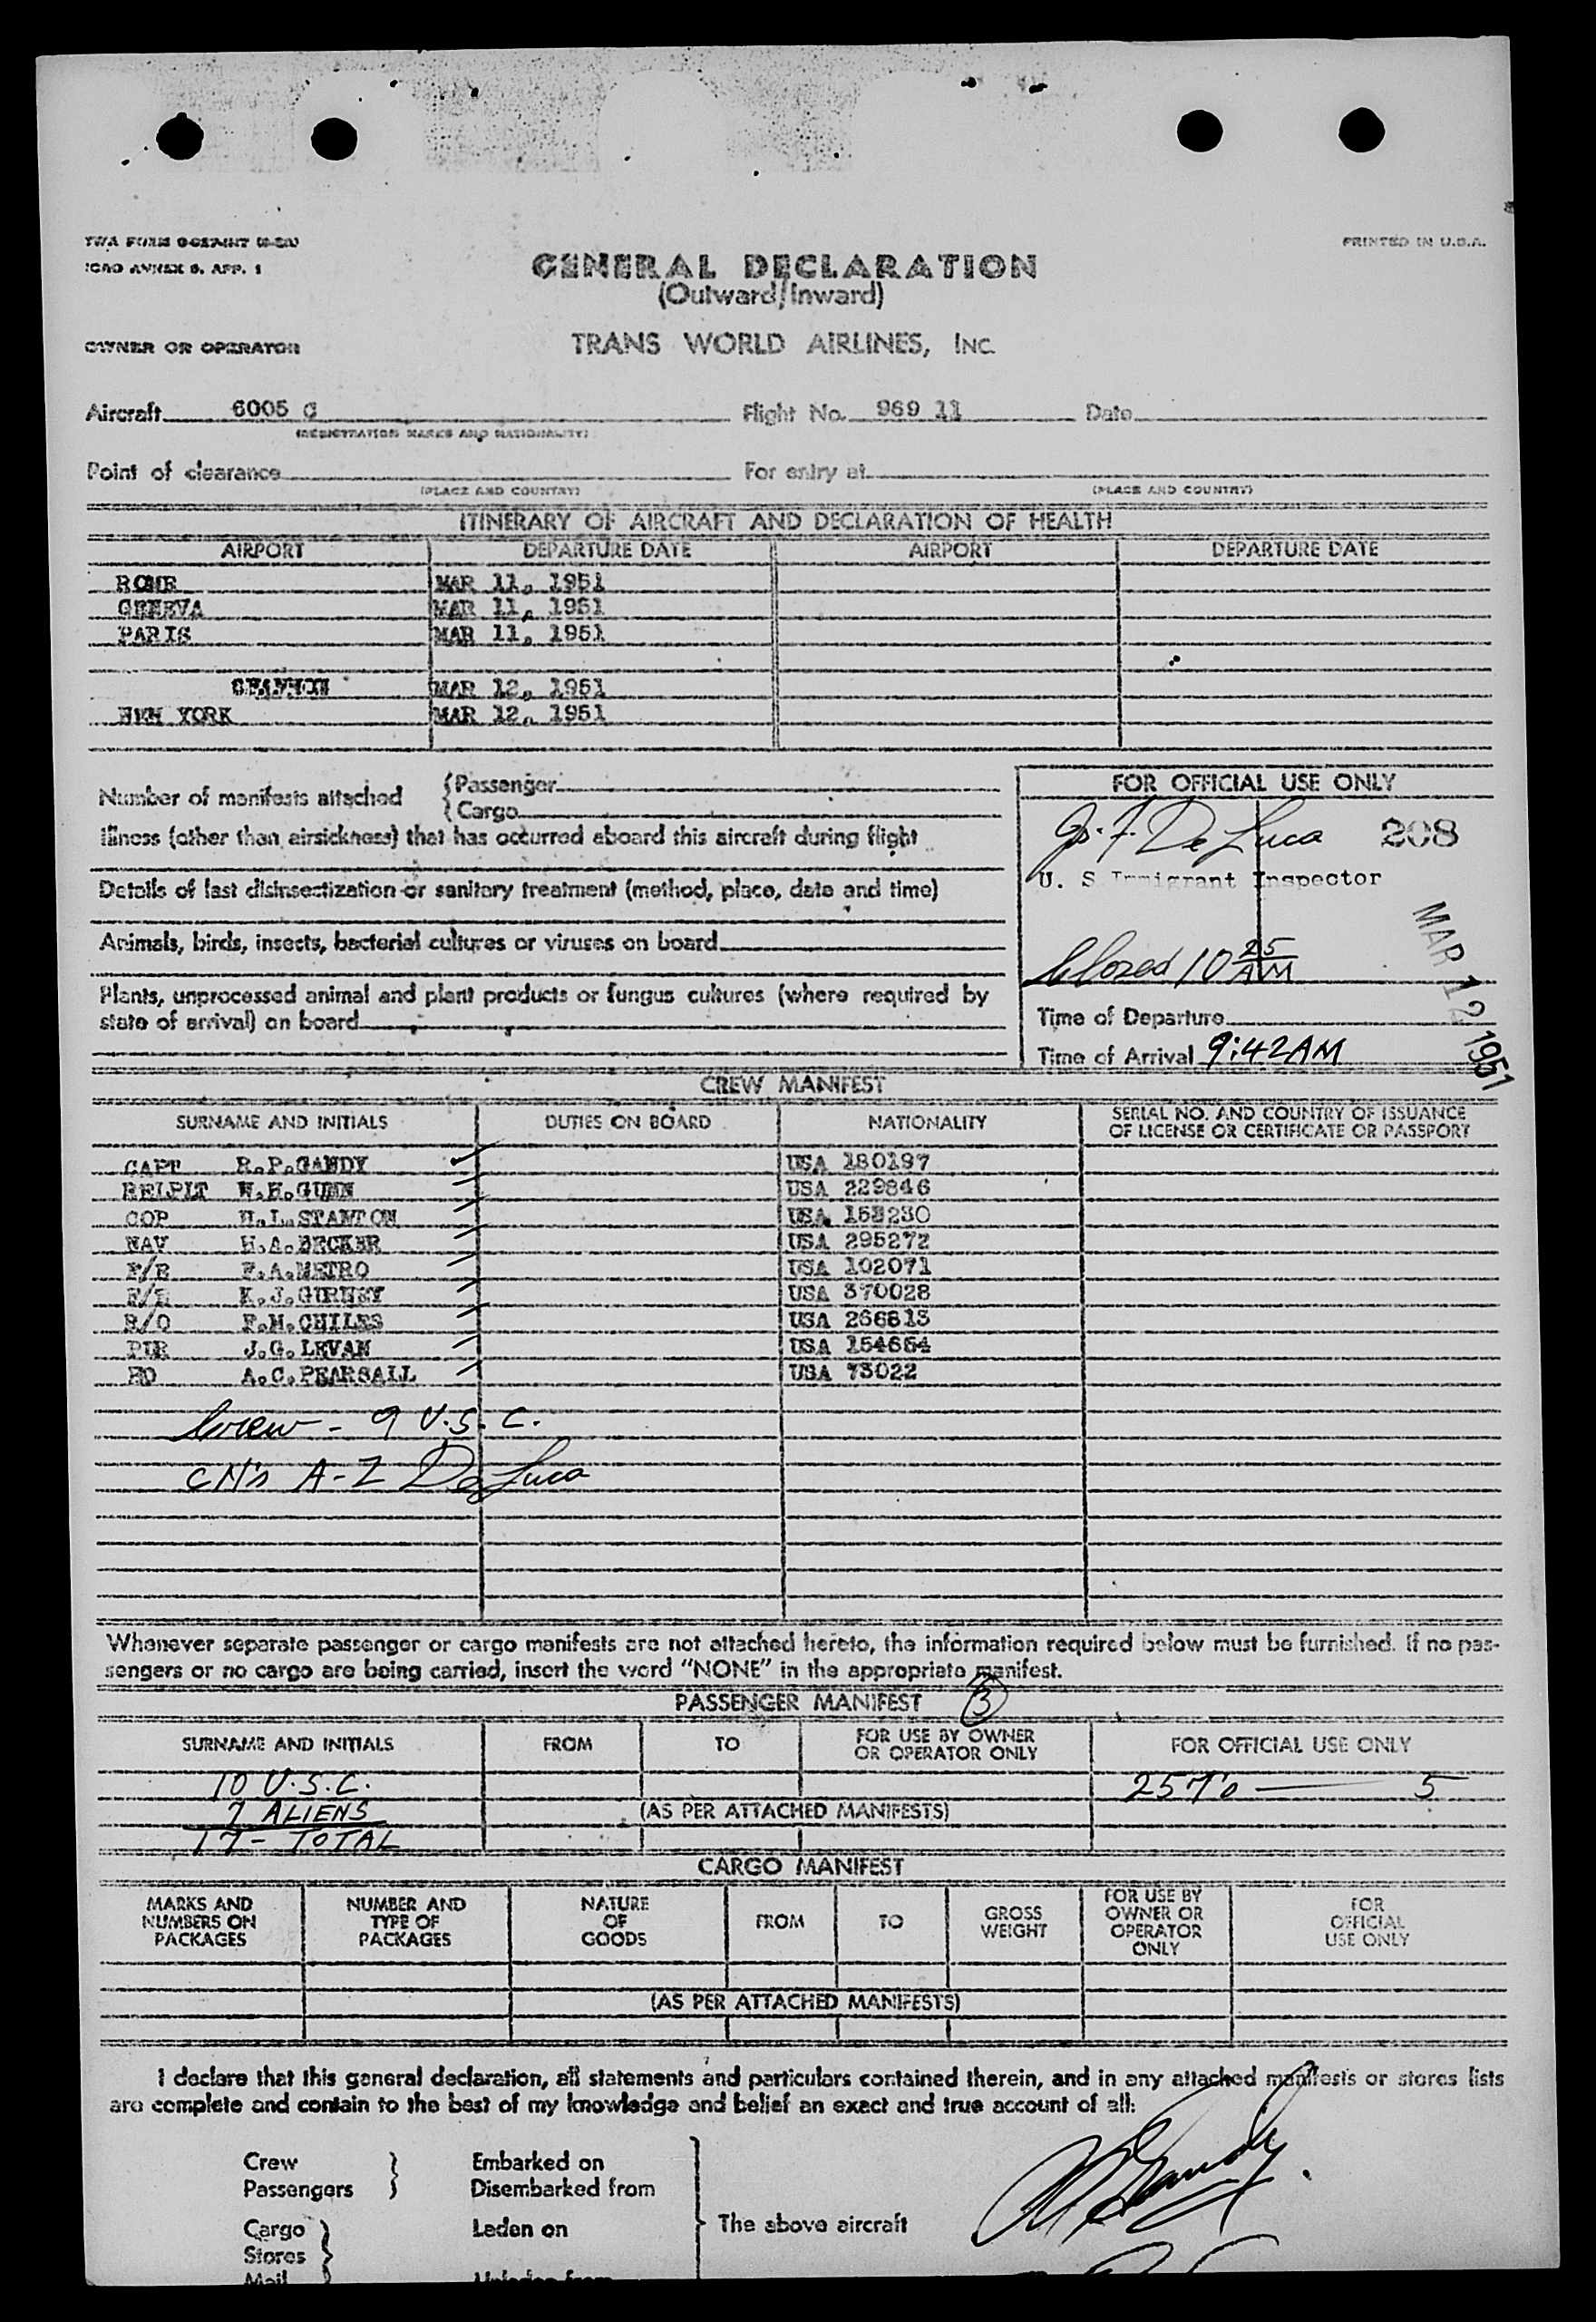 PRINTED IN U.S.A.
ICAO ANNEX 9, APP. 1
GENERAL DECLARATION
(Outward/Inward)
OWNER OR OPERATOR TRANS WORLD AIRLINES, INC.
Aircraft 6005 C Flight No. 969 11 Date
(REGISTRATION MARKS AND NATIONALITY)
Point of clearance For entry at
(PLACE AND COUNTRY) (PLACE AND COUNTRY)
ITINERARY OF AIRCRAFT AND DECLARATION OF HEALTH
AIRPORT DEPARTURE DATE AIRPORT DEPARTURE DATE
ROME MAR 11, 1951
GENEVA MAR 11, 1951
PARIS MAR 11, 1951
SHANNON MAR 12, 1951
NEW YORK MAR 12, 1951
Number of manifests attached { Passenger
{ Cargo
Illness (other than airsickness) that has occurred aboard this aircraft during flight
Details of last disinsectization or sanitary treatment (method, place, date and time)
Animals, birds, insects, bacterial cultures or viruses on board
Plants, unprocessed animal and plant products or fungus cultures (where required by
state of arrival) on board
FOR OFFICIAL USE ONLY
De Luca 208
U. S Immigrant Inspector
Closed 10 25 AM
MAR 12 1951
Time of Departure
Time of Arrival 9:42 AM
CREW MANIFEST
SURNAME AND INITIALS DUTIES ON BOARD NATIONALITY SERIAL NO. AND COUNTRY OF ISSUANCE
OF LICENSE OR CERTIFICATE OR PASSPORT
CAPT R.P.GANDY USA 180197
RELPLT W.H.GUNN USA 229846
COP H.L.STANTON USA 153230
NAV H.A.BECKER USA 295272
F/E F.A.METRO USA 102071
F/E K.J.GURNEY USA 370028
R/O F.M.CHILES USA 266813
PUR J.G.LEVAN USA 154664
HO A.C.PEARSALL USA 73022
Crew - 9 U.S.C.
A-Z De Luca
Whenever separate passenger or cargo manifests are not attached hereto, the information required below must be furnished. If no pas-
sengers or no cargo are being carried, insert the word "NONE" in the appropriate manifest.
PASSENGER MANIFEST 3
SURNAME AND INITIALS FROM TO FOR USE BY OWNER
OR OPERATOR ONLY FOR OFFICIAL USE ONLY
10 U.S.C. 257's — 5
7 ALIENS (AS PER ATTACHED MANIFESTS)
17 - TOTAL
CARGO MANIFEST
MARKS AND
NUMBERS ON
PACKAGES
NUMBER AND
TYPE OF
PACKAGES
NATURE
OF
GOODS
FROM
TO
GROSS
WEIGHT
FOR USE BY
OWNER OR
OPERATOR
ONLY
FOR
OFFICIAL
USE ONLY
(AS PER ATTACHED MANIFESTS)
I declare that this general declaration, all statements and particulars contained therein, and in any attached manifests or stores lists
are complete and contain to the best of my knowledge and belief an exact and true account of all:
Crew Embarked on
Passengers Disembarked from
Cargo Laden on The above aircraft
Stores
Mail Unladen from